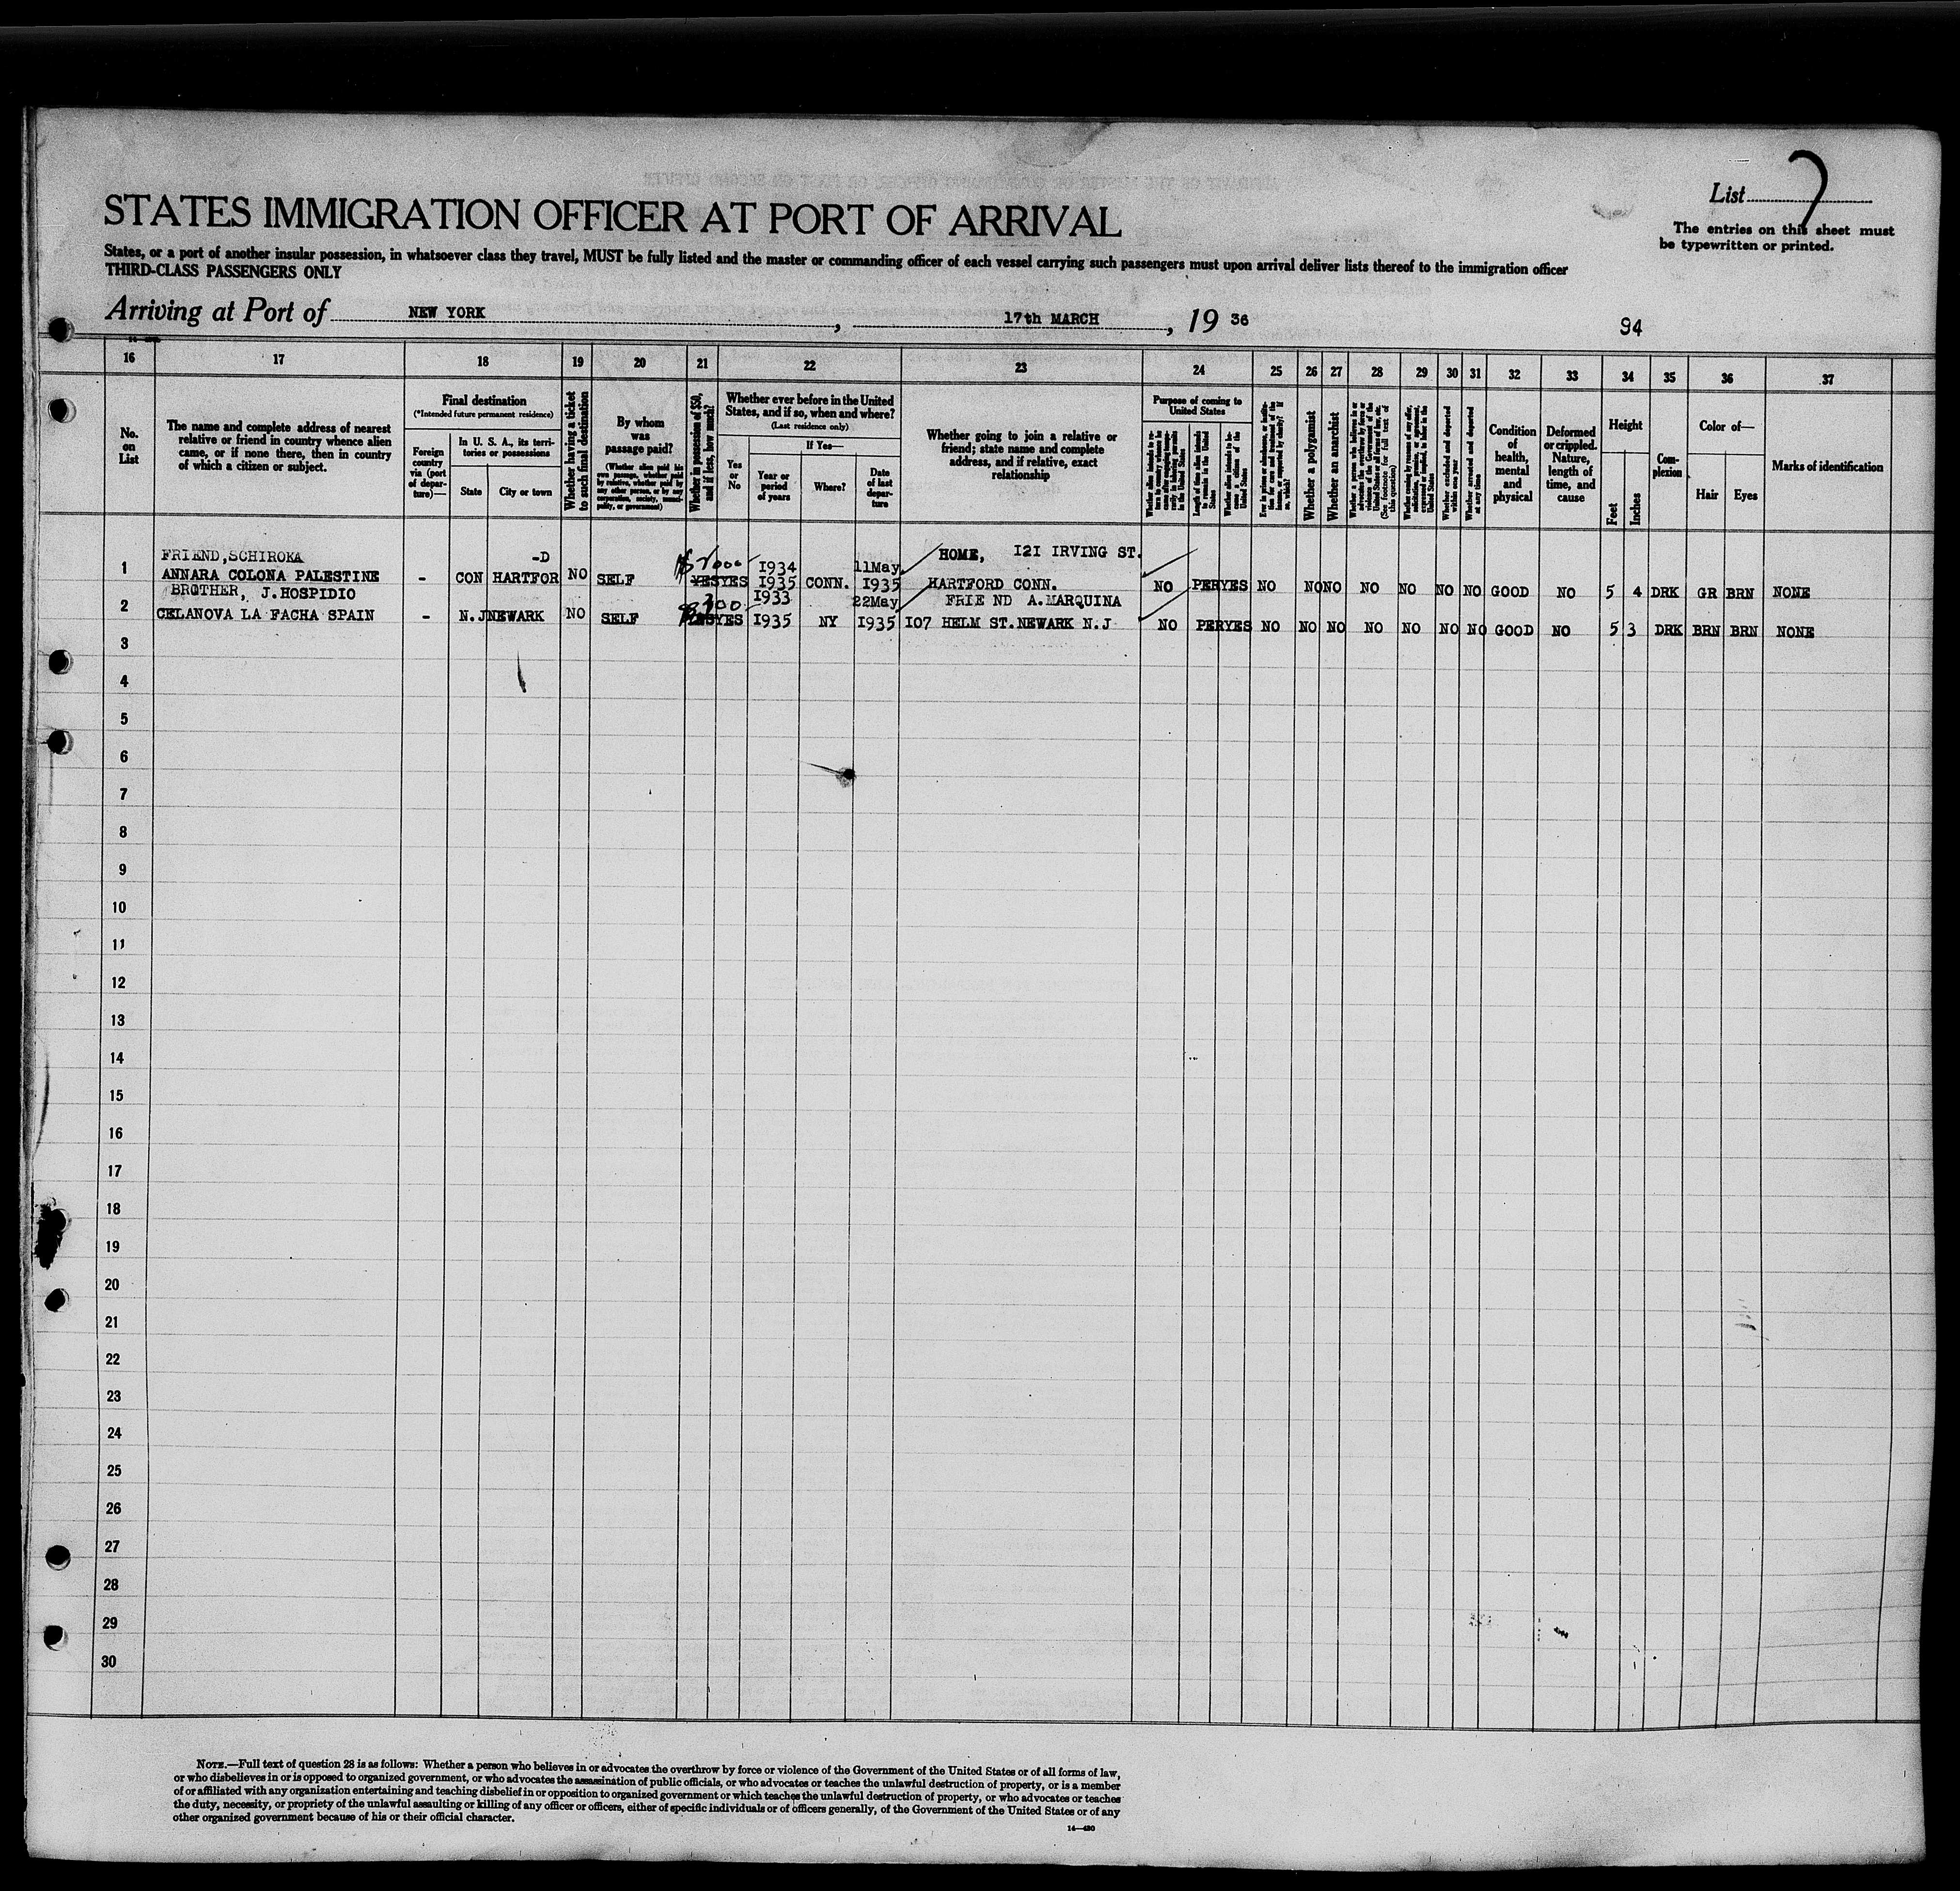 List 7
STATES IMMIGRATION OFFICER AT PORT OF ARRIVAL
The entries on this sheet must
be typewritten or printed.
States, or a port of another insular possession, in whatsoever class they travel, MUST be fully listed and the master or commanding officer of each vessel carrying such passengers must upon arrival deliver lists thereof to the immigration officer
THIRD-CLASS PASSENGERS ONLY
Arriving at Port of NEW YORK, 17th MARCH, 19 36
94
16 17 18 19 20 21 22 23 24 25 26 27 28 29 30 31 32 33 34 35 36 37
No.
on
List
The name and complete address of nearest
relative or friend in country whence alien
came, or if none there, then in country
of which a citizen or subject.
Final destination
(*Intended future permanent residence)
Foreign
country
via (port
of depar-
ture)—
In U. S. A., its terri-
tories or possessions
State
City or town
Whether having a ticket
to such final destination
By whom
was
passage paid?
(Whether alien paid his
own passage, whether paid
by relative, whether paid by
any other person, or by any
corporation, society, munici-
pality, or government)
Whether in possession of $50,
and if less, how much?
Whether ever before in the United
States, and if so, when and where?
(Last residence only)
Yes
or
No
If Yes—
Year or
period
of years
Where?
Date
of last
depar-
ture
Whether going to join a relative or
friend; state name and complete
address, and if relative, exact
relationship
Purpose of coming to
United States
Whether a polygamist
Whether an anarchist
(See footnote for full text of
this question)
Whether excluded and deported
within one year
Whether arrested and deported
at any time
Condition
of
health,
mental
and
physical
Deformed
or crippled.
Nature,
length of
time, and
cause
Height
Feet
Inches
Com-
plexion
Color of—
Hair
Eyes
Marks of identification
FRIEND, SCHIROKA -D $5000 1934 11May HOME, 121 IRVING ST.
1 ANNARA COLONA PALESTINE - CON HARTFOR NO SELF YES YES 1935 CONN. 1935 HARTFORD CONN. NO PER YES NO NO NO NO NO NO NO GOOD NO 5 4 DRK GR BRN NONE
BROTHER, J.HOSPIDIO 1933 22May FRIE ND A.MARQUINA
2 CELANOVA LA FACHA SPAIN - N.J NEWARK NO SELF YES 1935 NY 1935 107 HELM ST.NEWARK N.J NO PER YES NO NO NO NO NO NO NO GOOD NO 5 3 DRK BRN BRN NONE
3
4
5
6
7
8
9
10
11
12
13
14
15
16
17
18
19
20
21
22
23
24
25
26
27
28
29
30
NOTE.—Full text of question 28 is as follows: Whether a person who believes in or advocates the overthrow by force or violence of the Government of the United States or of all forms of law,
or who disbelieves in or is opposed to organized government, or who advocates the assassination of public officials, or who advocates or teaches the unlawful destruction of property, or is a member
of or affiliated with any organization entertaining and teaching disbelief in or opposition to organized government or which teaches the unlawful destruction of property, or who advocates or teaches
the duty, necessity, or propriety of the unlawful assaulting or killing of any officer or officers, either of specific individuals or of officers generally, of the Government of the United States or of any
other organized government because of his or their official character.
14—430